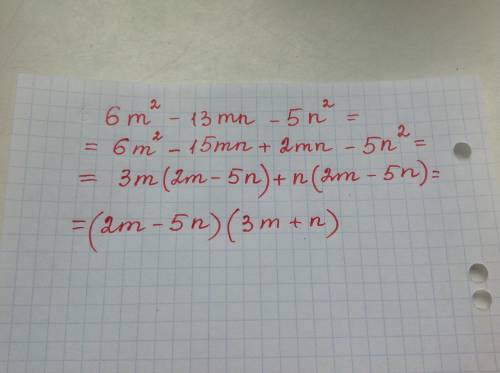 6m² - 13mn - 5n² =
= 6m² - 15mn + 2mn - 5n² =
= 3m(2m - 5n) + n(2m - 5n) =
= (2m - 5n)(3m + n)